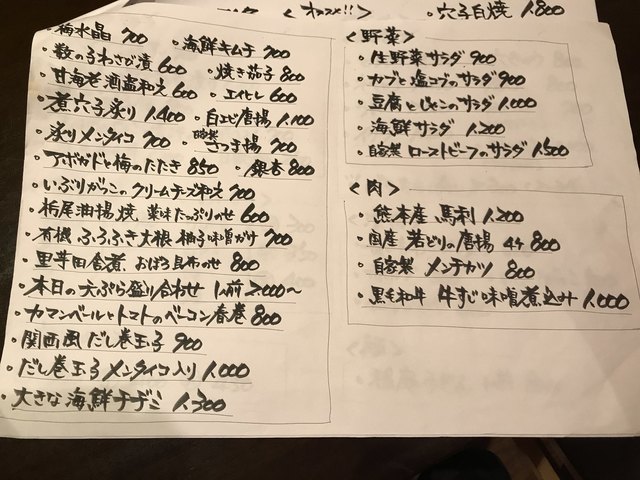 <オススメ!!>
・穴子白焼 1,800
・梅水晶 700 ・海鮮キムチ 700
・数の子わさび漬 600 ・焼き茄子 800
・甘海老酒盗和え 600 ・エイヒレ 600
・煮穴子炙り 1,400 ・白エビ唐揚 1,100
・炙りメンタイコ 700 ・自家製さつま揚 700
・アボカドと梅のたたき 850 ・銀杏 800
・いぶりがっこのクリームチーズ和え 700
・栃尾油揚焼、薬味たっぷりのせ 600
・有機ふろふき大根 柚子味噌がけ 700
・里芋田舎煮、おぼろ昆布のせ 800
・本日の天ぷら盛り合わせ 1人前 2,000〜
・カマンベールとトマトのベーコン春巻 800
・関西風だし巻玉子 900
・だし巻玉子メンタイコ入り 1,000
・大きな海鮮チヂミ 1,300
<野菜>
・生野菜サラダ 900
・カブと塩コブのサラダ 900
・豆腐とじゃこのサラダ 1,000
・海鮮サラダ 1,200
・自家製ローストビーフのサラダ 1,500
<肉>
・熊本産 馬刺 1,200
・国産 若どりの唐揚 4ケ 800
・自家製 メンチカツ 800
・黒毛和牛 牛すじ味噌煮込み 1,000